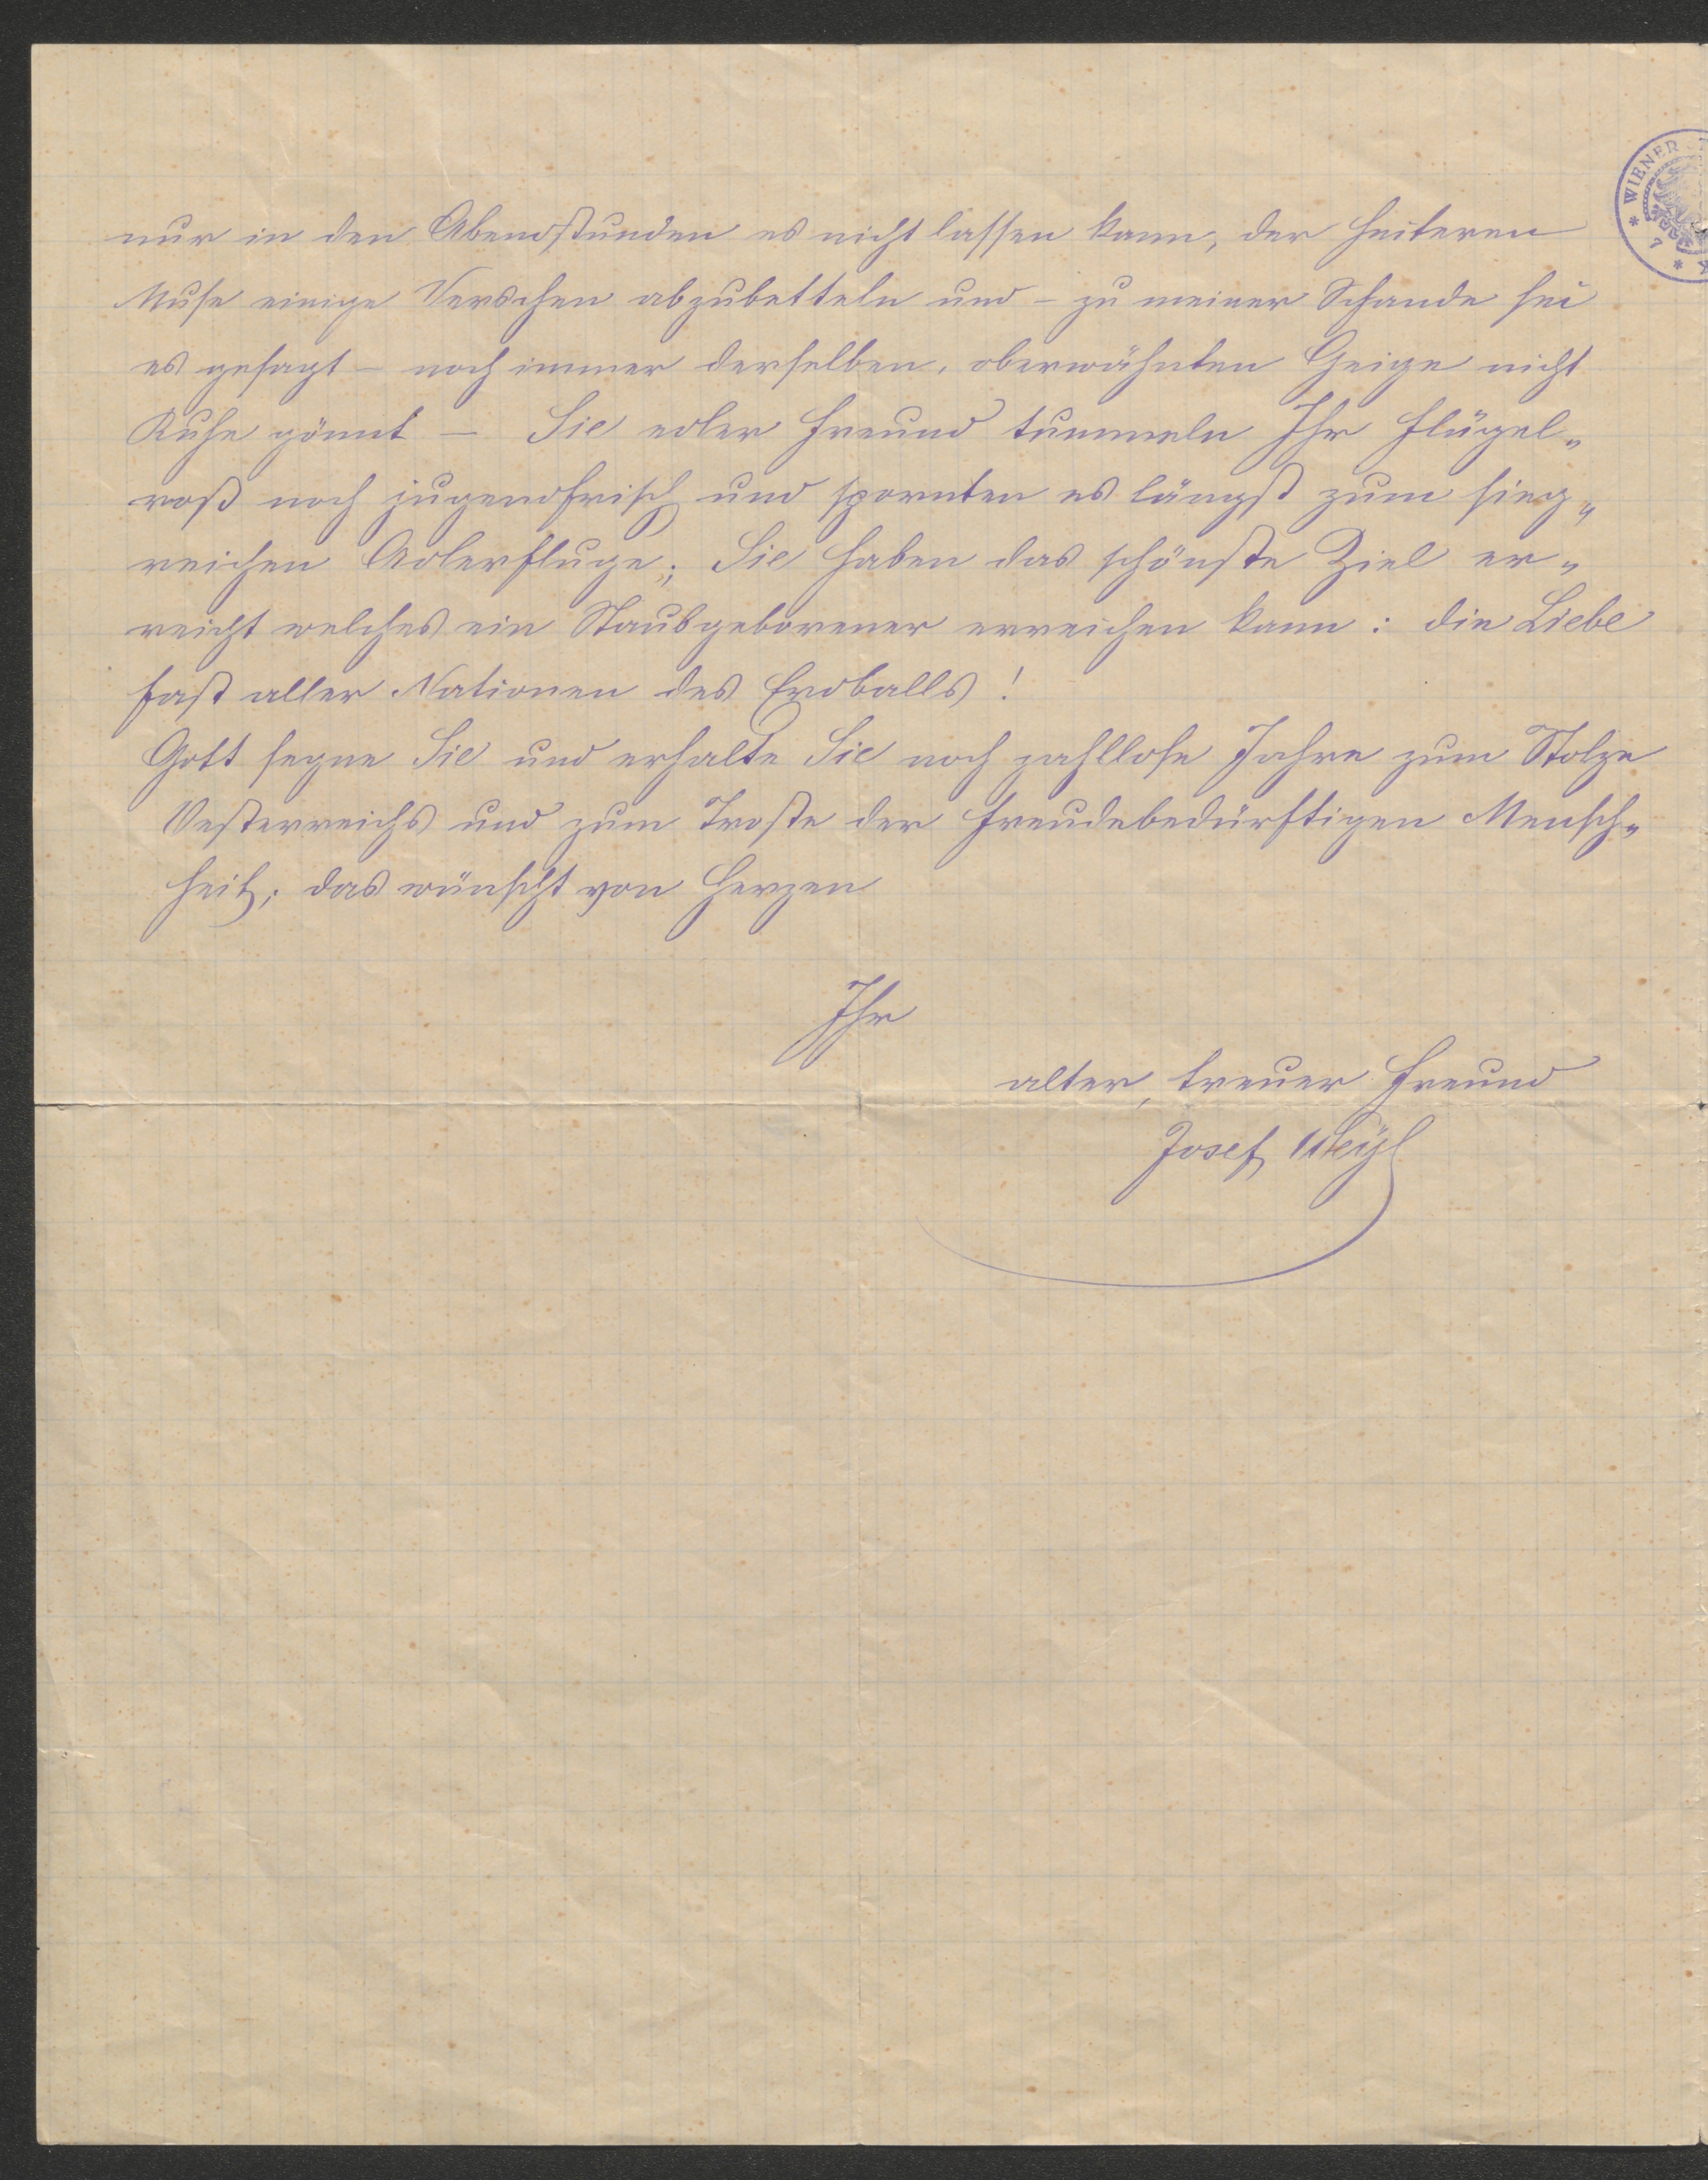 nur in den Abendstunden es nicht lassen kann, der heiteren
Muse einige Verschen abzubetteln und – zu meiner Schande sei
es gesagt – noch immer derselben, oberwähnten Geige nicht
Ruhe gönnt – Sie edler Freund tummeln Ihr Flügel„
roß noch jugendfrisch und spornten es längst zum sieg„
reichen Adlerfluge; Sie haben das schönste Ziel er„
reicht welches ein Staubgeborener erreichen kann: die Liebe
fast aller Nationen des Erdballs!
Gott segne Sie und erhalte Sie noch zahllose Jahre zum Stolze
Oesterreichs und zum Troste der freudebedürftigen Mensch„
heit; das wünscht von Herzen
Ihr
alter, treuer Freund
Josef Weyl
WIENER